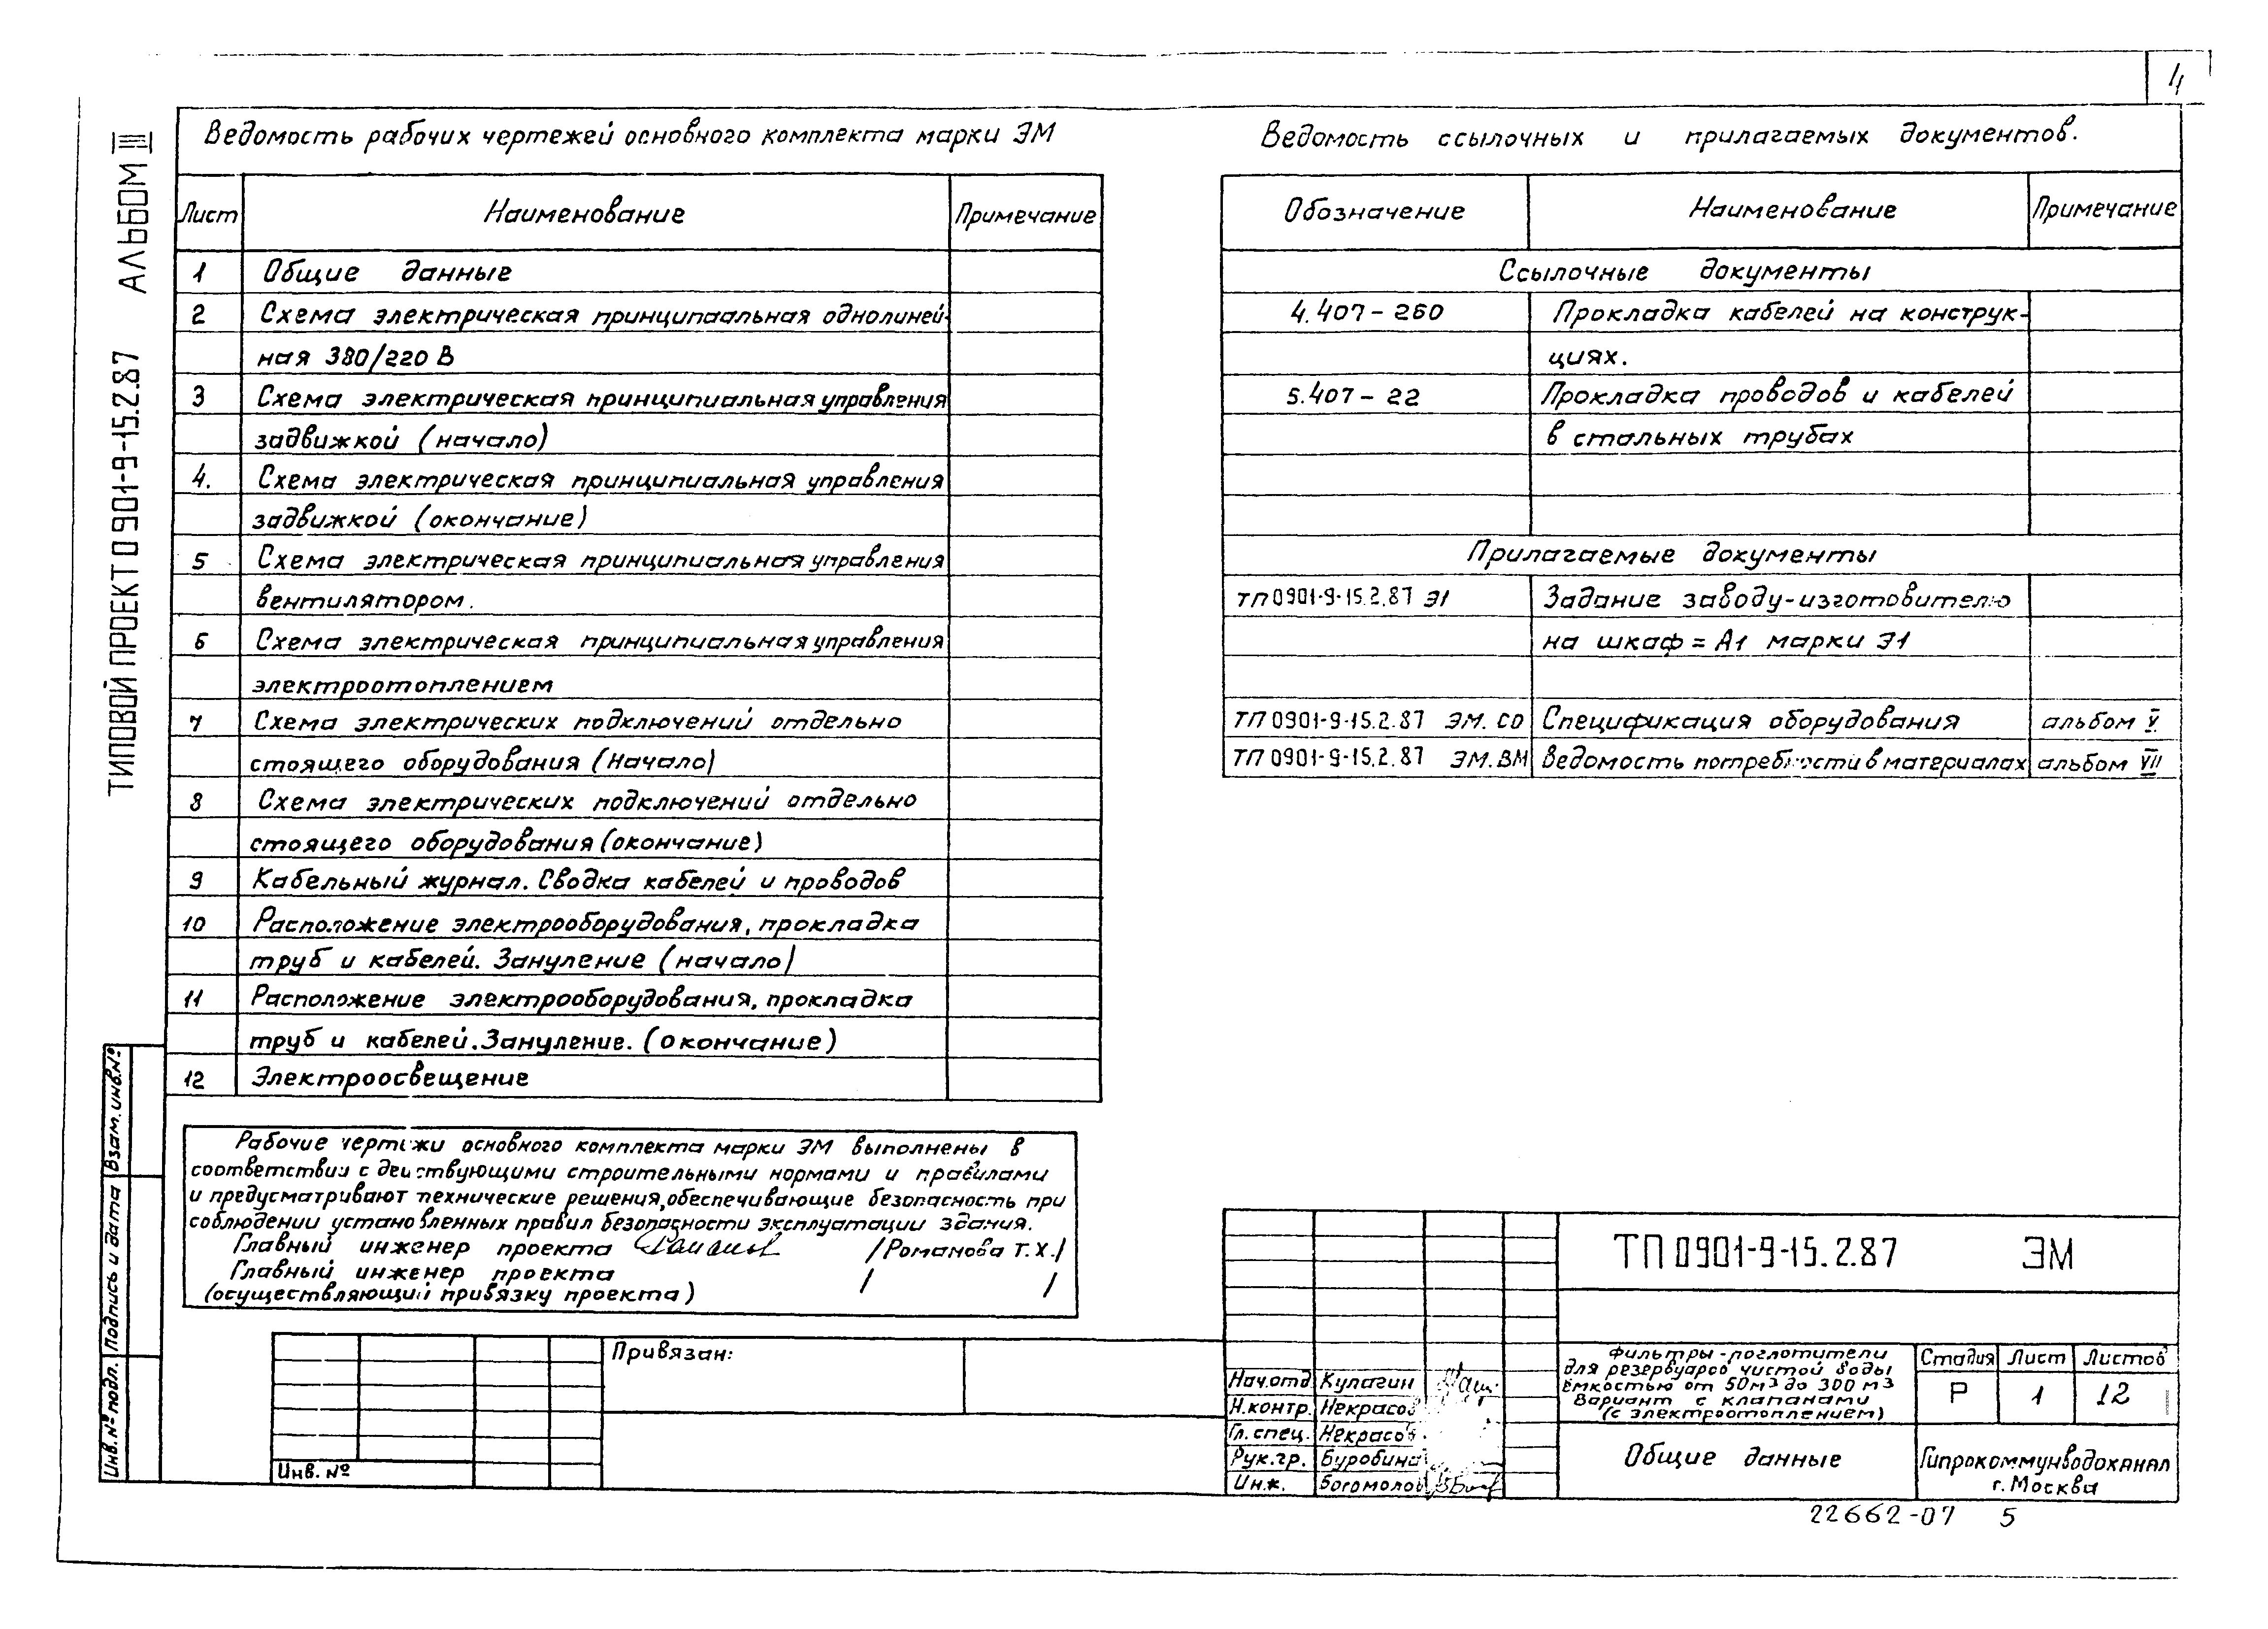 4
ТИПОВОЙ ПРОЕКТ 0901-9-15.2.87 АЛЬБОМ III
Ведомость рабочих чертежей основного комплекта марки ЭМ
Лист Наименование Примечание
1 Общие данные
2 Схема электрическая принципаальная однолиней-
ная 380/220 В
3 Схема электрическая принципиальная управления
задвижкой (начало)
4. Схема электрическая принципиальная управления
задвижкой (окончание)
5 Схема электрическая принципиальная управления
вентилятором.
6 Схема электрическая принципиальная управления
электроотоплением
7 Схема электрических подключений отдельно
стоящего оборудования (начало)
8 Схема электрических подключений отдельно
стоящего оборудования (окончание)
9 Кабельный журнал. Сводка кабелей и проводов
10 Расположение электрооборудования, прокладка
труб и кабелей. Зануление (начало)
11 Расположение электрооборудования, прокладка
труб и кабелей. Зануление. (окончание)
12 Электроосвещение
Ведомость ссылочных и прилагаемых документов.
Обозначение Наименование Примечание
Ссылочные документы
4.407-260 Прокладка кабелей на конструк-
циях.
5.407-22 Прокладка проводов и кабелей
в стальных трубах
Прилагаемые документы
ТП 0901-9-15.2.87 Э1 Задание заводу-изготовителю
на шкаф = А1 марки Э1
ТП 0901-9-15.2.87 ЭМ.СО Спецификация оборудования альбом V
ТП 0901-9-15.2.87 ЭМ.ВМ Ведомость потребности в материалах альбом VII
Рабочие чертежи основного комплекта марки ЭМ выполнены в
соответствии с действующими строительными нормами и правилами
и предусматривают технические решения, обеспечивающие безопасность при
соблюдении установленных правил безопасности эксплуатации здания.
Главный инженер проекта /Романова Т.Х./
Главный инженер проекта / /
(осуществляющий привязку проекта)
Взам. инв.№
Подпись и дата
Инв.№ подл.
Привязан:
Инв. №
ТП 0901-9-15.2.87 ЭМ
Нач.отд Кулагин
Н.контр. Некрасов
Гл. спец. Некрасов
Рук.гр. Буробина
Инж. Богомолов
Фильтры-поглотители
для резервуаров чистой воды
ёмкостью от 50м3 до 300 м3
Вариант с клапанами
(с электроотоплением)
Стадия Лист Листов
Р 1 12
Общие данные
Гипрокоммунводоканал
г. Москва
22662-07 5